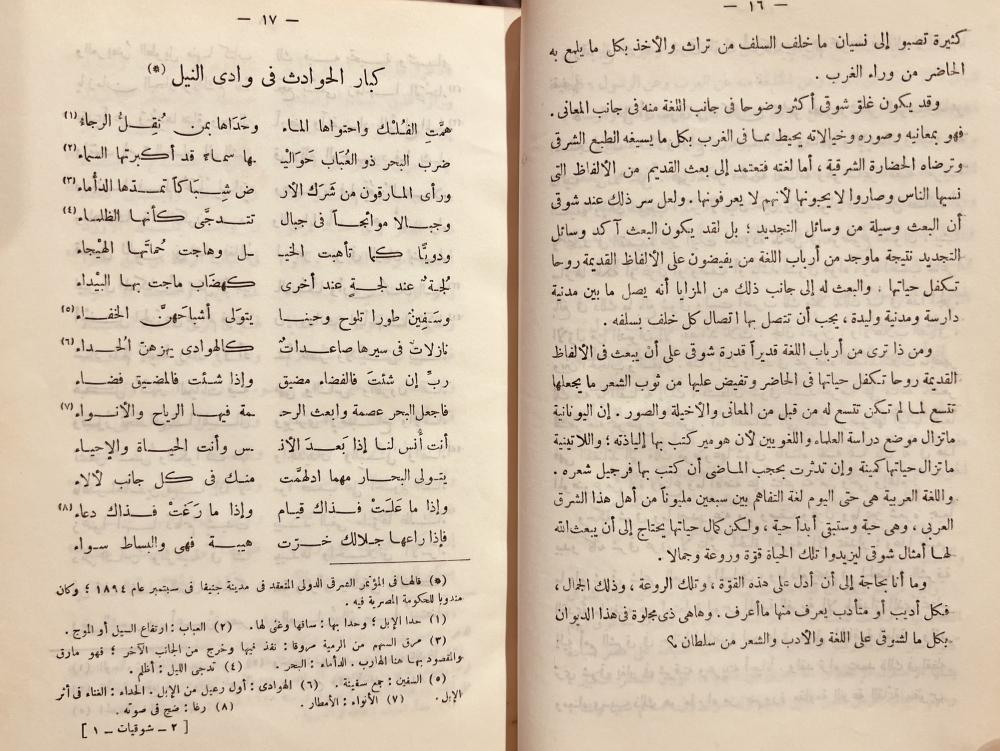 — ١٦ —
كثيرة تصبو إلى نسيان ما خلف السلف من تراث والأخذ بكل ما يلمع به
الحاضر من وراء الغرب .
وقد يكون غلق شوقى أكثر وضوحا فى جانب اللغة منه فى جانب المعانى .
فهو بمعانيه وصوره وخيالاته يحيط مما فى الغرب بكل ما يسيغه الطبع الشرقى
وترضاه الحضارة الشرقية ، أما لغته فتعتمد إلى بعث القديم من الألفاظ التى
نسيها الناس وصاروا لا يحبونها لأنهم لا يعرفونها . ولعل سر ذلك عند شوقى
أن البعث وسيلة من وسائل التجديد ؛ بل لقد يكون البعث آكد وسائل
التجديد نتيجة ماوجد من أرباب اللغة من يفيضون على الألفاظ القديمة روحا
تكفل حياتها . والبعث له إلى جانب ذلك من المزايا أنه يصل ما بين مدنية
دارسة ومدنية وليدة ، يجب أن تتصل بها اتصال كل خلف بسلفه .
ومن ذا ترى من أرباب اللغة قديراً قدرة شوقى على أن يبعث فى الألفاظ
القديمة روحا تكفل حياتها فى الحاضر وتفيض عليها من ثوب الشعر ما يجعلها
تتسع لما لم تكن تتسع له من قبل من المعانى والأخيلة والصور . إن اليونانية
ماتزال موضع دراسة العلماء واللغويين لأن هومير كتب بها إلياذته ؛ واللاتينية
ماتزال حياتها كمينة وإن تدثرت بحجب الماضى أن كتب بها فرجيل شعره .
واللغة العربية هى حتى اليوم لغة التفاهم بين سبعين مليوناً من أهل هذا الشرق
العربى ، وهى حية وستبقى أبداً حية ، ولكن كمال حياتها يحتاج إلى أن يبعث الله
لها أمثال شوقى ليزيدوا تلك الحياة قوة وروعة وجمالا .
وما أنا بحاجة إلى أن أدل على هذه القوة ، وتلك الروعة ، وذلك الجمال ،
فكل أديب أو متأدب يعرف منها ماأعرف . وهاهى ذى مجلوة فى هذا الديوان
بكل ما لشوقى على اللغة والأدب والشعر من سلطان .؟
— ١٧ —
كبار الحوادث فى وادى النيل (*)
همَّتِ الفُلْك واحتواها الماء وحَدَاها بمن تُقِلُّ الرجاءُ (١)
ضرب البحر ذو العُبَاب حَوَالَيْـ ـها سماءً قد أكبرتها السماء (٢)
ورأى المارقون من شَرَك الأر ض شِباكاً تمدّها الدَّأماء (٣)
وجبالا موائجاً فى جبال تتدجَّى كأنها الظلماء (٤)
ودويًّا كما تأهبت الخيـ ـل وهاجت حُماتَها الهَيْجاء
لُجّةٌ عند لجةٍ عند أخرى كهضَاب ماجت بها البيْداء
وسَفِينٌ طورا تلوح وحينا يتولى أشباحَهنَّ الخفاء (٥)
نازلاتٌ فى سيرها صاعداتٌ كالهوادى يهزهن الحُداء (٦)
ربِّ إن شئتَ فالفضاء مضيق وإذا شئت فالمضيق فضاء
فاجعل البحر عصمة وابعث الرحـ ـمة فيها الرياح والأنواء (٧)
أنت أُنس لنا إذا بَعدَ الأنـ ـس وأنت الحياة والإحياء
يتولى البحار مهما ادلهمَّت منك فى كل جانب لألاء
وإذا ما عَلَتْ فذاك قيام وإذا ما رَغَتْ فذاك دعاء (٨)
فإذا راعها جلالك خرّت هيبة فهى والبساط سواء
(*) قالها فى المؤتمر الشرقى الدولى المنعقد فى مدينة جنيفا فى سبتمبر عام ١٨٩٤ ؛ وكان
مندوبا للحكومة المصرية فيه .
(١) حدا الإبل ؛ وحدا بها : ساقها وغنى لها . (٢) العباب : ارتفاع السيل أو الموج .
(٣) مرق السهم من الرمية مروقا : نفذ فيها وخرج من الجانب الآخر ؛ فهو مارق
والمقصود بها هنا الهارب . الدأماء : البحر . (٤) تدجى الليل : أظلم .
(٥) السفين : جمع سفينة . (٦) الهوادى : أول رعيل من الإبل . الحداء : الغناء فى أثر
الإبل . (٧) الأنواء : الأمطار . (٨) رغا : ضج فى صوته .
[ ٢ — شوقيات — ١ ]